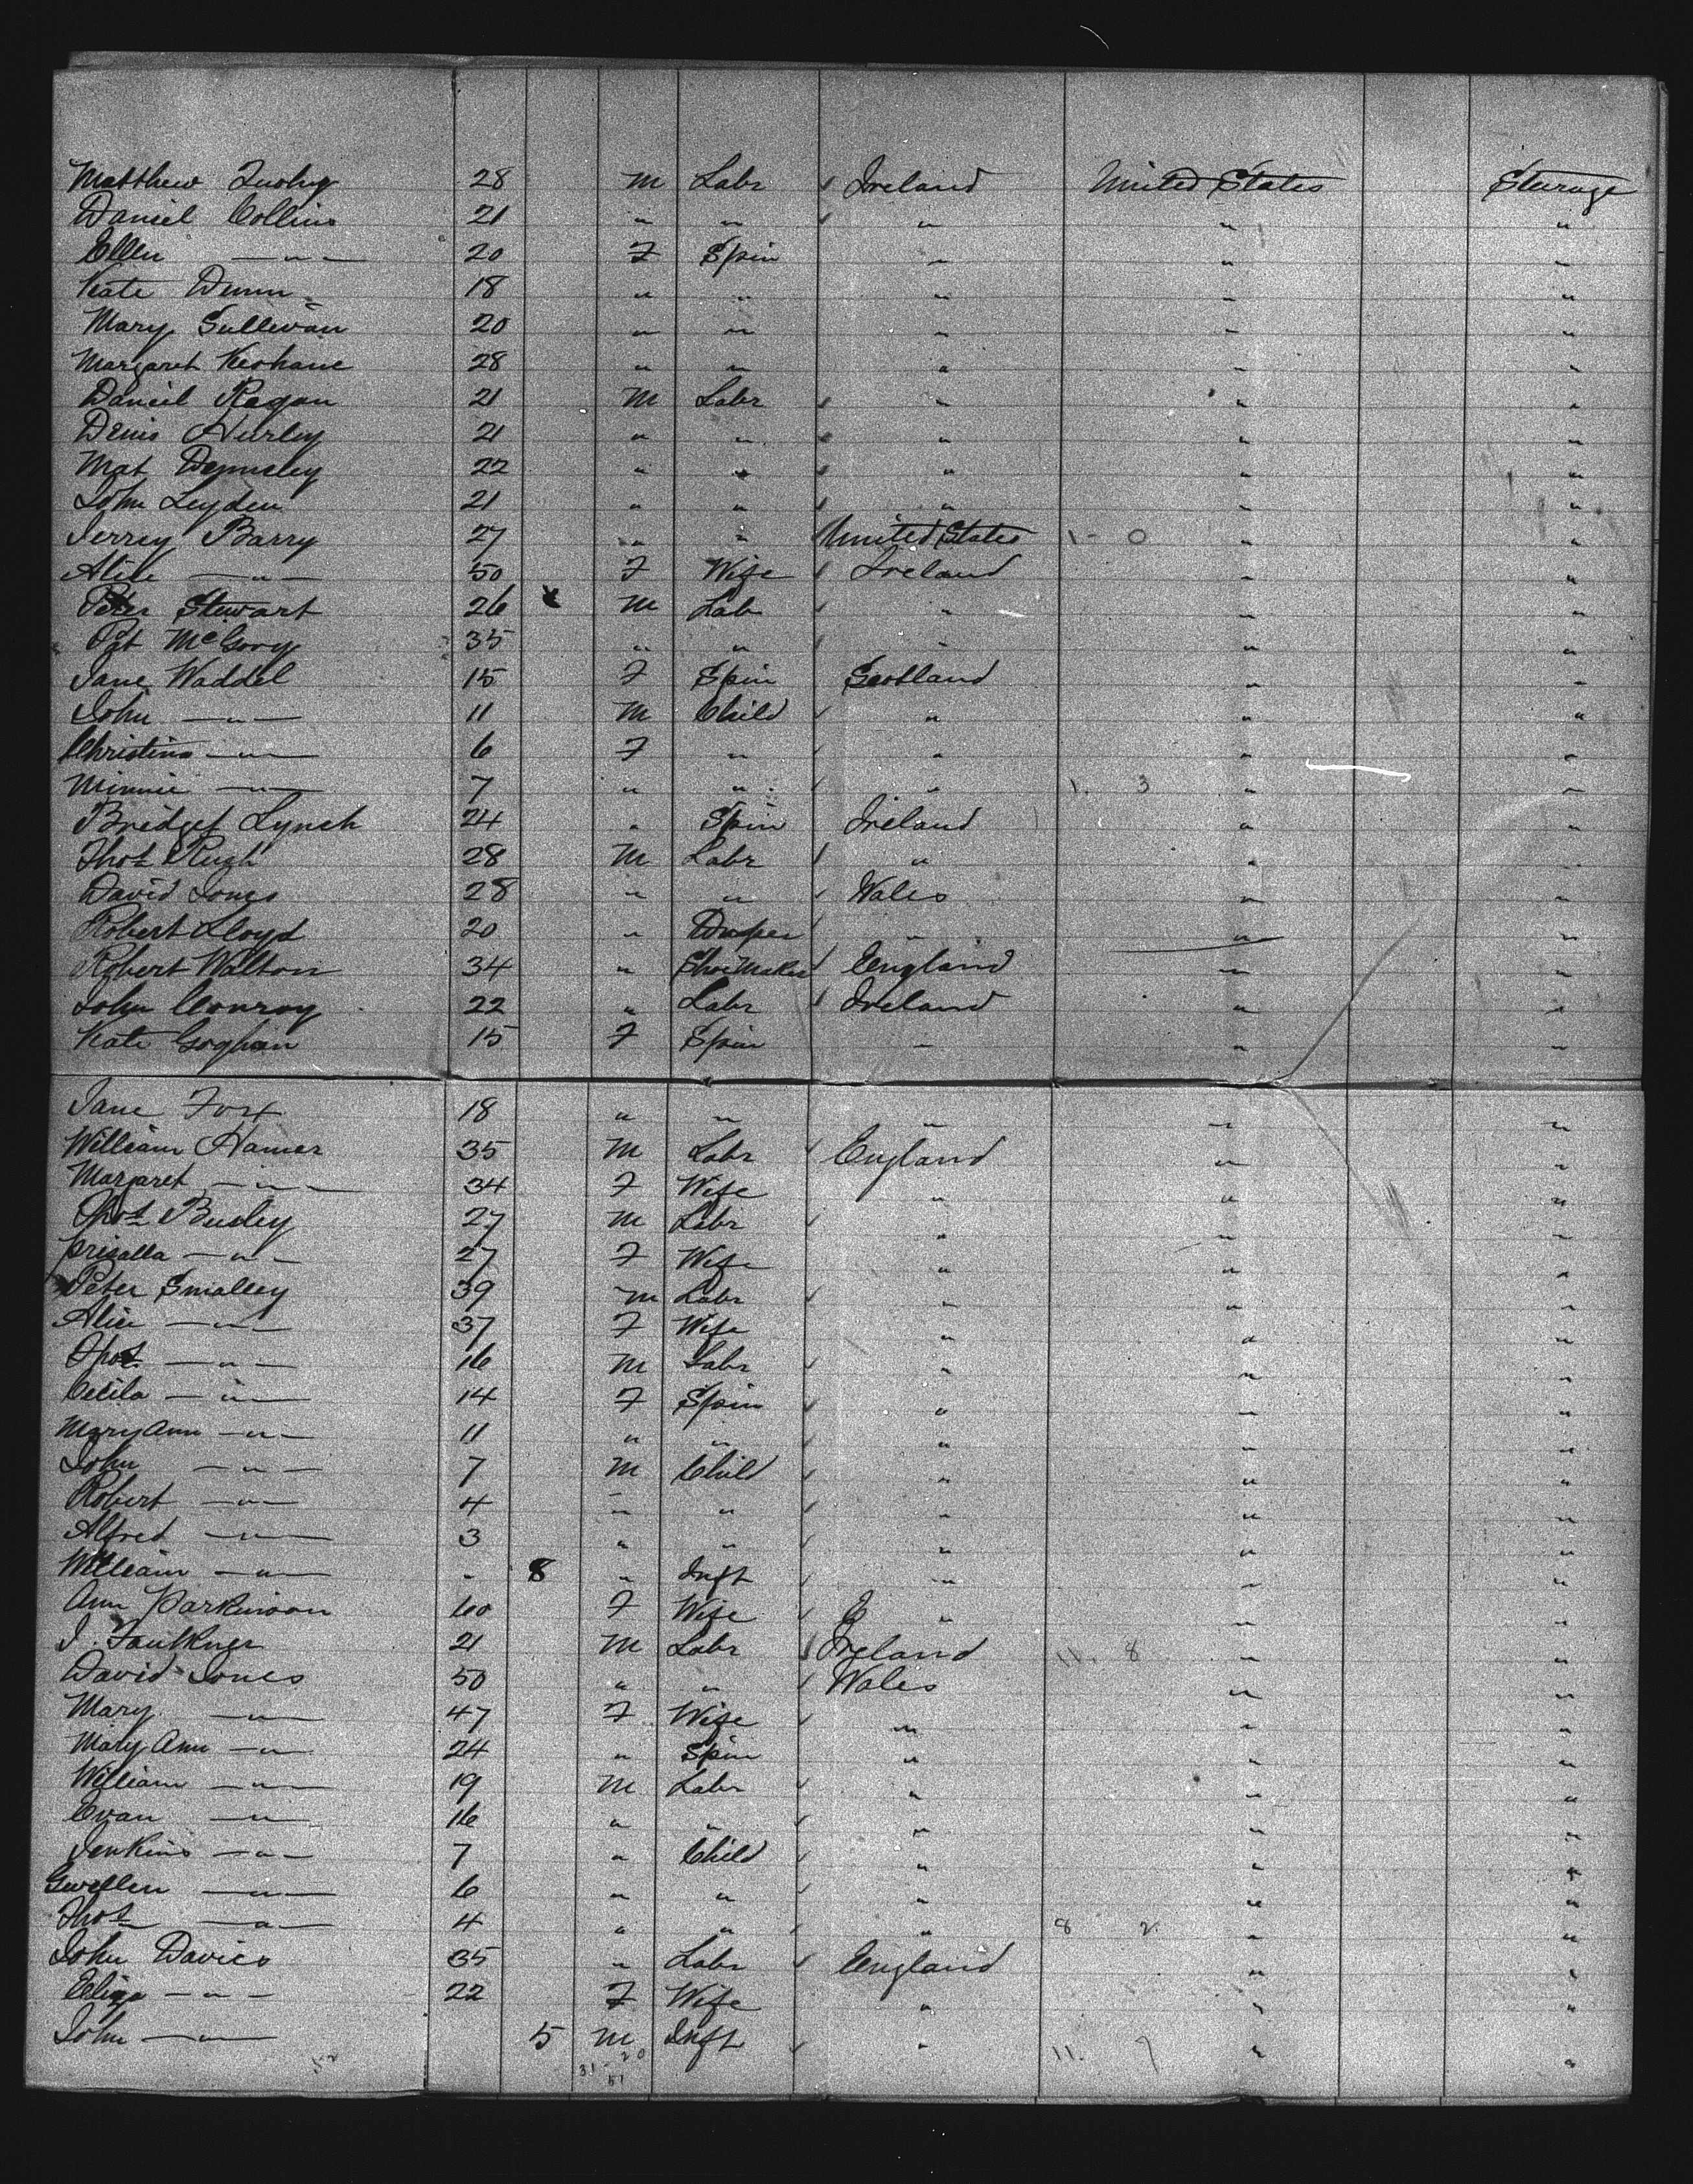 Matthew Tuohy 28 M Labr Ireland United States Steerage
Daniel Collins 21 " " " " "
Ellen — " — 20 F Spin " " "
Kate Dunn 18 " " " " "
Mary Sullivan 20 " " " " "
Margaret Keohane 28 " " " " "
Daniel Regan 21 M Labr " " "
Denis Hurley 21 " " " " "
Mat 22 " " " " "
John Leyden 21 " " " " "
Jerrey Barry 27 " " United States 1 - 0 " "
Alice — " — 50 F Wife Ireland " "
Peter Stewart 26 M Lab " " "
Pat McGovy 35 " " " " "
Jane Waddel 15 F Spin Scotland " "
John — " — 11 M Child " " "
Christina — " — 6 F " " " "
Minnie — " — 7 " " " 1. 3 " "
Bridget Lynch 24 " Spin Ireland " "
Thos Pugh 28 M Labr " " "
David Jones 28 " " Wales " "
Robert Lloyd 20 " Draper " " "
Robert Walton 34 " Shoemaker England " "
John Conroy 22 " Labr Ireland " "
Kate Goghan 15 F Spin " " "
Jane Fox 18 " " " " "
William Hamer 35 M Labr England " "
Margaret — " — 34 F Wife " " "
Thos Busley 27 M Labr " " "
Prisalla — " — 27 F Wife " " "
Peter Smalley 39 M Labr " " "
Alice — " — 37 F Wife " " "
Thos — " — 16 M Labr " " "
Cecila — " — 14 F Spin " " "
Mary Ann — " — 11 " " " " "
John — " — 7 M Child " " "
Robert — " — 4 " " " " "
Alfred — " — 3 " " " " "
William — " — - 8 " Inft " " "
Ann Parkinson 60 F Wife E " " "
J. Faulkner 21 M Labr Ireland 11. 8 " "
David Jones 50 " " Wales " "
Mary — " — 47 F Wife " " "
Mary Ann — " — 24 " Spin " " "
William — " — 19 M Labr " " "
Evan — " — 16 " " " " "
Jenkins — " — 7 " Child " " "
Gwellen — " — 6 " " " " "
Thos — " — 4 " " " 8 2. " "
John Davies 35 " Labr England " "
Eliza — " — 22 F Wife " " "
John — " — 5 M Inft " 11. 9 " "
52 31 - 20
51